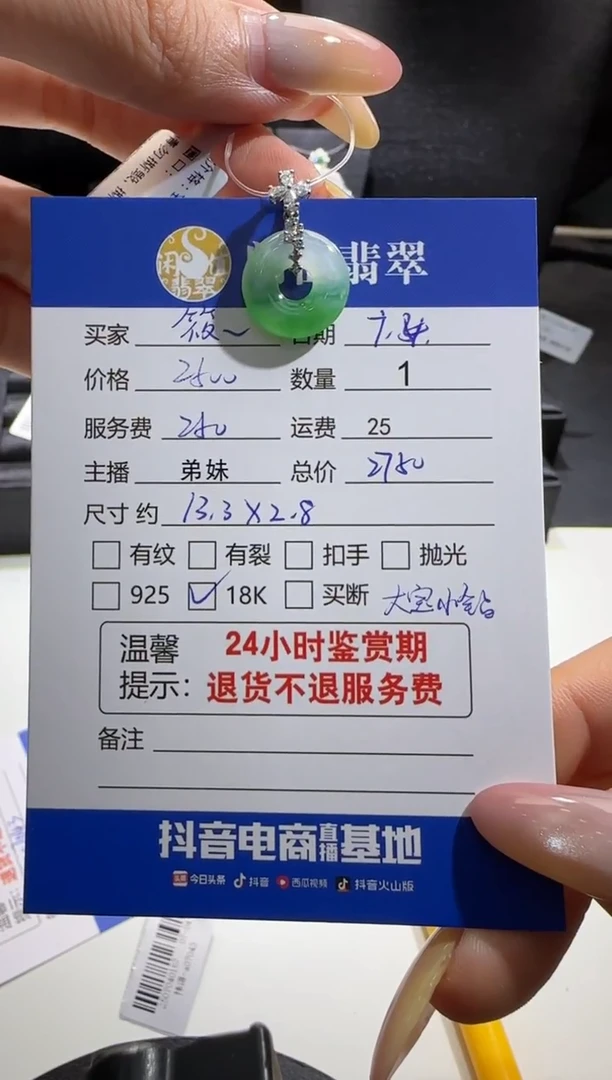 闲
翡翠
翡翠
买家 筱~ 日期
价格 2500 数量 1
服务费 250 运费 25
主播 弟妹 总价 2750
尺寸 约 13.3×2.8
有纹 有裂 扣手 抛光
925 18K 买断
温馨提示: 24小时鉴赏期
退货不退服务费
备注
抖音电商直播基地
头条 今日头条 抖音 西瓜视频 抖音火山版